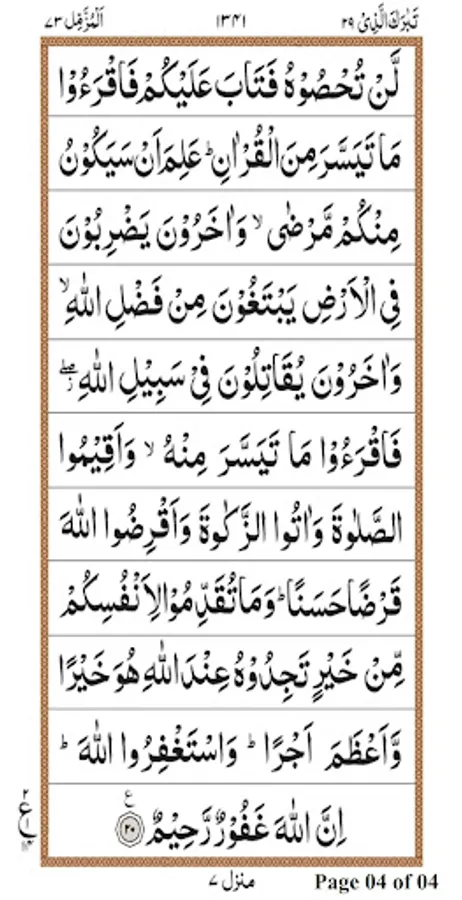 تَبٰرَكَ الَّذِیْ ۲۹ ۱۳۴۱ اَلْمُزَّمِّل ۷۳
لَّنْ تُحْصُوْهُ فَتَابَ عَلَیْكُمْ فَاقْرَءُوْا
مَا تَیَسَّرَ مِنَ الْقُرْاٰنِ ؕ عَلِمَ اَنْ سَیَكُوْنُ
مِنْكُمْ مَّرْضٰی ۙ وَاٰخَرُوْنَ یَضْرِبُوْنَ
فِی الْاَرْضِ یَبْتَغُوْنَ مِنْ فَضْلِ اللّٰهِ ۙ
وَاٰخَرُوْنَ یُقَاتِلُوْنَ فِیْ سَبِیْلِ اللّٰهِ ۖؗ
فَاقْرَءُوْا مَا تَیَسَّرَ مِنْهُ ۙ وَاَقِیْمُوا
الصَّلٰوةَ وَاٰتُوا الزَّكٰوةَ وَاَقْرِضُوا اللّٰهَ
قَرْضًا حَسَنًا ؕ وَمَا تُقَدِّمُوْا لِاَنْفُسِكُمْ
مِّنْ خَیْرٍ تَجِدُوْهُ عِنْدَ اللّٰهِ هُوَ خَیْرًا
وَّاَعْظَمَ اَجْرًا ؕ وَاسْتَغْفِرُوا اللّٰهَ ؕ
اِنَّ اللّٰهَ غَفُوْرٌ رَّحِیْمٌ ۲۰ ع
منزل ۷ Page 04 of 04